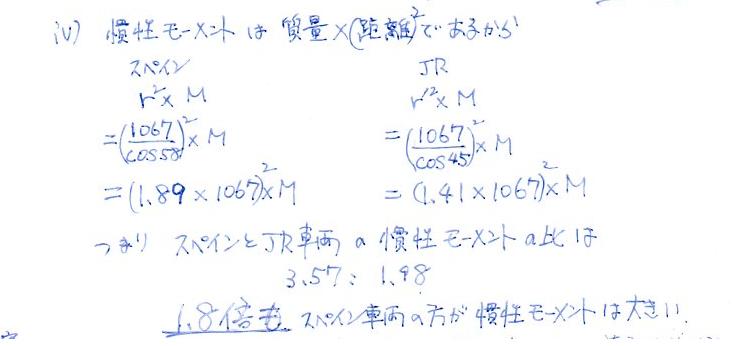 iv) 慣性モーメントは 質量×(距離)²であるから
スペイン JR
r²×M r'²×M
=(1067/cos58)²×M =(1067/cos45)²×M
=(1.89×1067)²×M =(1.41×1067)²×M
つまり スペインとJR車両の慣性モーメントの比は
3.57:1.98
1.8倍も スペイン車両の方が慣性モーメントは大きい.